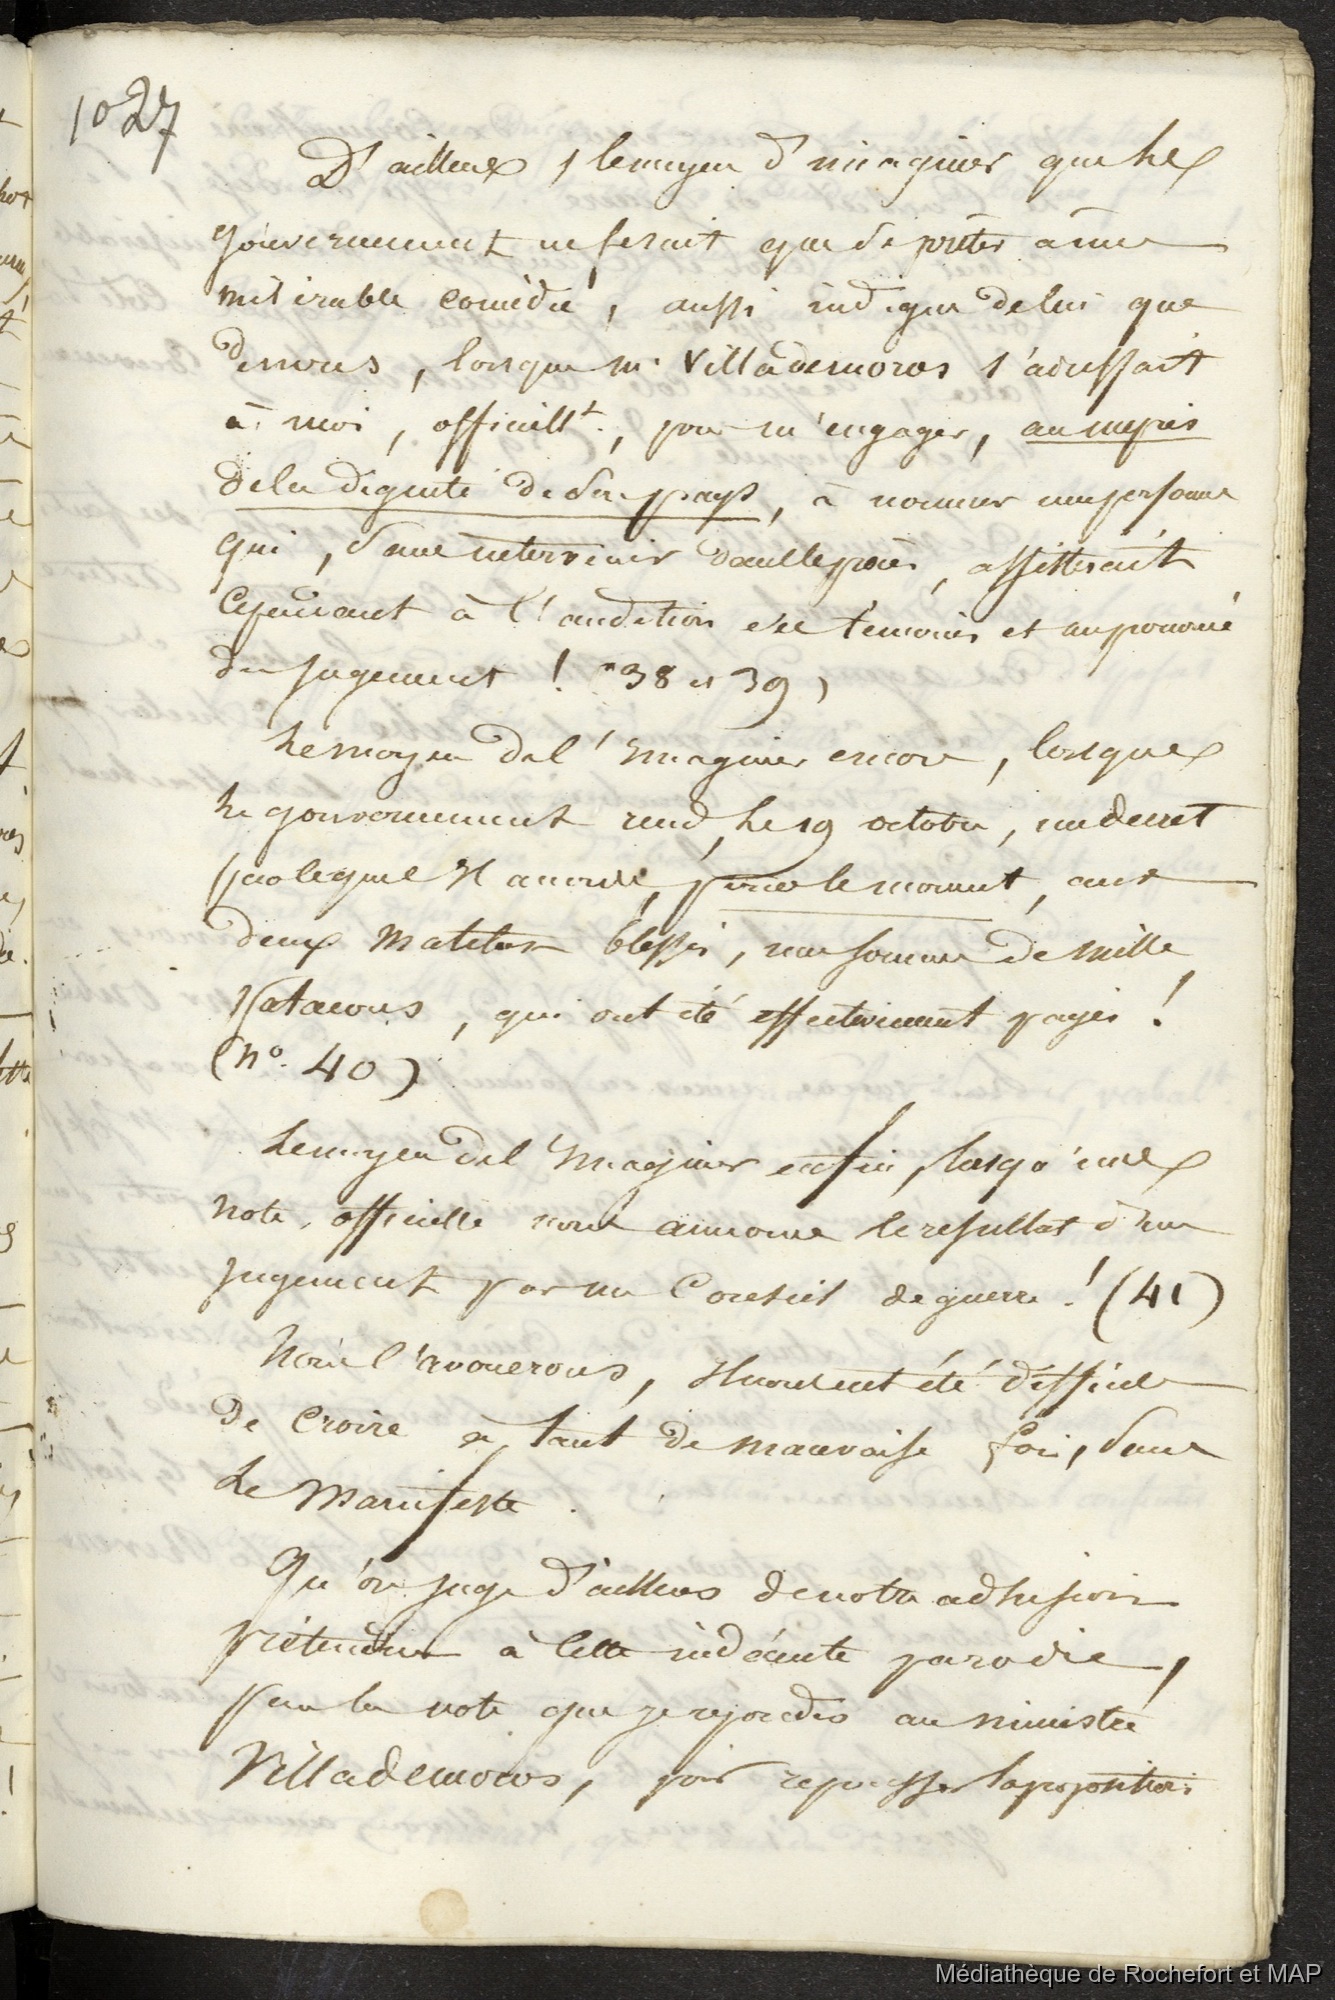 1027
D'ailleurs, le moyen d'imaginer que le
gouvernement ne ferait que se prêter à une
misérable comédie, aussi indigne de lui que
de nous, lorsque Mr Villademoros s'adressait
à moi, officiellt., pour m'engager, au mepris
de la dignité de son pays, à nommer une personne
qui, sans intervenir dans le procès, assisterait
cependant à l'audition des temoins et au prononcé
du jugement ! (38 et 39)
Le moyen de l'imaginer encore, lorsque
le gouvernement rend, le 19 octobre, un decret
par lequel il accorde, pour le moment, aux
deux matelots blessés, une somme de mille
patacons, qui ont été effectivement payés !
(No. 40)
Le moyen de l'imaginer enfin, lorsqu'une
note officielle nous annonce le resultat d'un
jugement par un Conseil de guerre ! (41)
Nous l'avouerons, il nous eut été difficile
de croire à tant de mauvaise foi, sans
le Manifeste.
Qu'on juge d'ailleurs de notre adhesion
pretendue à cette indécente parodie,
par la note que je repondis au ministre
Villademoros, pour repousser la proposition
Médiathèque de Rochefort et MAP